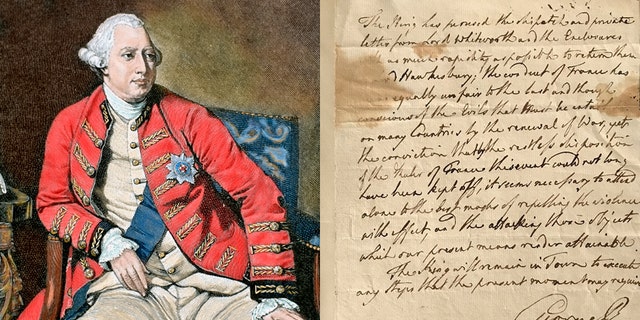 The King has perused the dispatch and private
letter from Lord Whitworth and the Enclosures
as much rapidity as possible to return them
Hawkesbury; the conduct of France has
equally unfair to the last and though
conscious of the Evils that must be
on many Countries by the renewal of War, yet
the conviction that the restless disposition
of the Ruler of France this event could not long
have been kept off, it seems necessary to attend
alone to the best modes of repelling the violence
with effect and the attacking those objects
which our present means render attainable
The King will remain in Town to execute
any steps that the present moment may require
George R